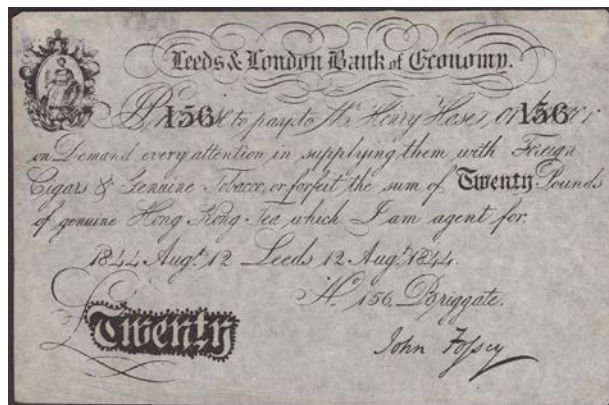 Leeds & London Bank of Economy.
156 to pay to Mr. Henry Hase, or 156
on Demand every attention in supplying them with Foreign
Cigars & Genuine Tobacco, or forfeit the sum of Twenty Pounds
of genuine Hong Kong Tea which I am agent for.
1844 Augt. 12 Leeds 12 Augt. 1844.
No. 156 Briggate.
£Twenty
John Fossey